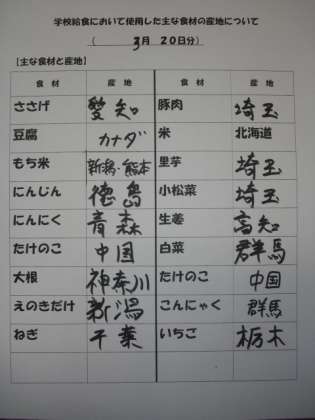 学校給食において使用した主な食材の産地について
( 3月 20日分)
【主な食材と産地】
食材 産地 食材 産地
ささげ 愛知 豚肉 埼玉
豆腐 カナダ 米 北海道
もち米 新潟・熊本 里芋 埼玉
にんじん 徳島 小松菜 埼玉
にんにく 青森 生姜 高知
たけのこ 中国 白菜 群馬
大根 神奈川 たけのこ 中国
えのきだけ 新潟 こんにゃく 群馬
ねぎ 千葉 いちご 栃木